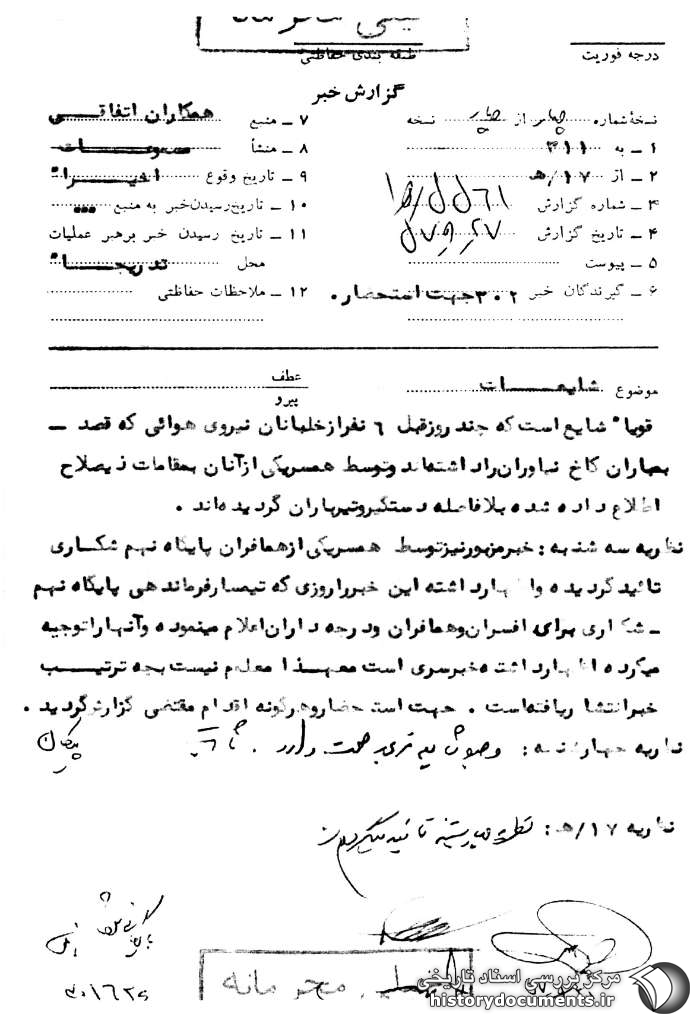 خیلی محرمانه
درجه فوریت
طبقه بندی حفاظتی
گزارش خبر
نسخهٔ شماره چهار از چهار نسخه
۱ ـ به ۳۱۱
۲ ـ از ۱۷/هـ
۳ ـ شماره گزارش
۴ ـ تاریخ گزارش
۵ ـ پیوست
۶ ـ گیرندگان خبر ۳۰۲ جهت استحضار.
۷ ـ منبع همکاران اتفاقی
۸ ـ منشأ مسموعات
۹ ـ تاریخ وقوع اخیراً
۱۰ ـ تاریخ رسیدن خبر به منبع
۱۱ ـ تاریخ رسیدن خبر برهبر عملیات
محل تدریجاً
۱۲ ـ ملاحظات حفاظتی
موضوع شایعات
عطف
پیرو
قویاً شایع است که چند روز قبل ۶ نفر از خلبانان نیروی هوائی که قصد ـ
بمباران کاخ نیاوران را داشته‌اند و توسط همسر یکی از آنان بمقامات ذیصلاح
اطلاع داده شده بلافاصله دستگیر و تیرباران گردیده‌اند .
نظریه سه شنبه : خبر مزبور نیز توسط همسر یکی از همافران پایگاه نهم شکاری
تائید گردیده و اظهار داشته این خبر را روزی که تیمسار فرماندهی پایگاه نهم
ـ شکاری برای افسران و همافران و درجه داران اعلام مینموده و آنها را توجیه
میکرده اظهار داشته خبر سری است معهذا معلوم نیست بچه ترتیب
خبر انتشار یافته است . جهت استحضار و هرگونه اقدام مقتضی گزارش گردید .
نظریه چهارشنبه :
نظریه ۱۷/هـ : نظریه چهارشنبه تائید میگردد
محرمانه
مرکز بررسی اسناد تاریخی
historydocuments.ir